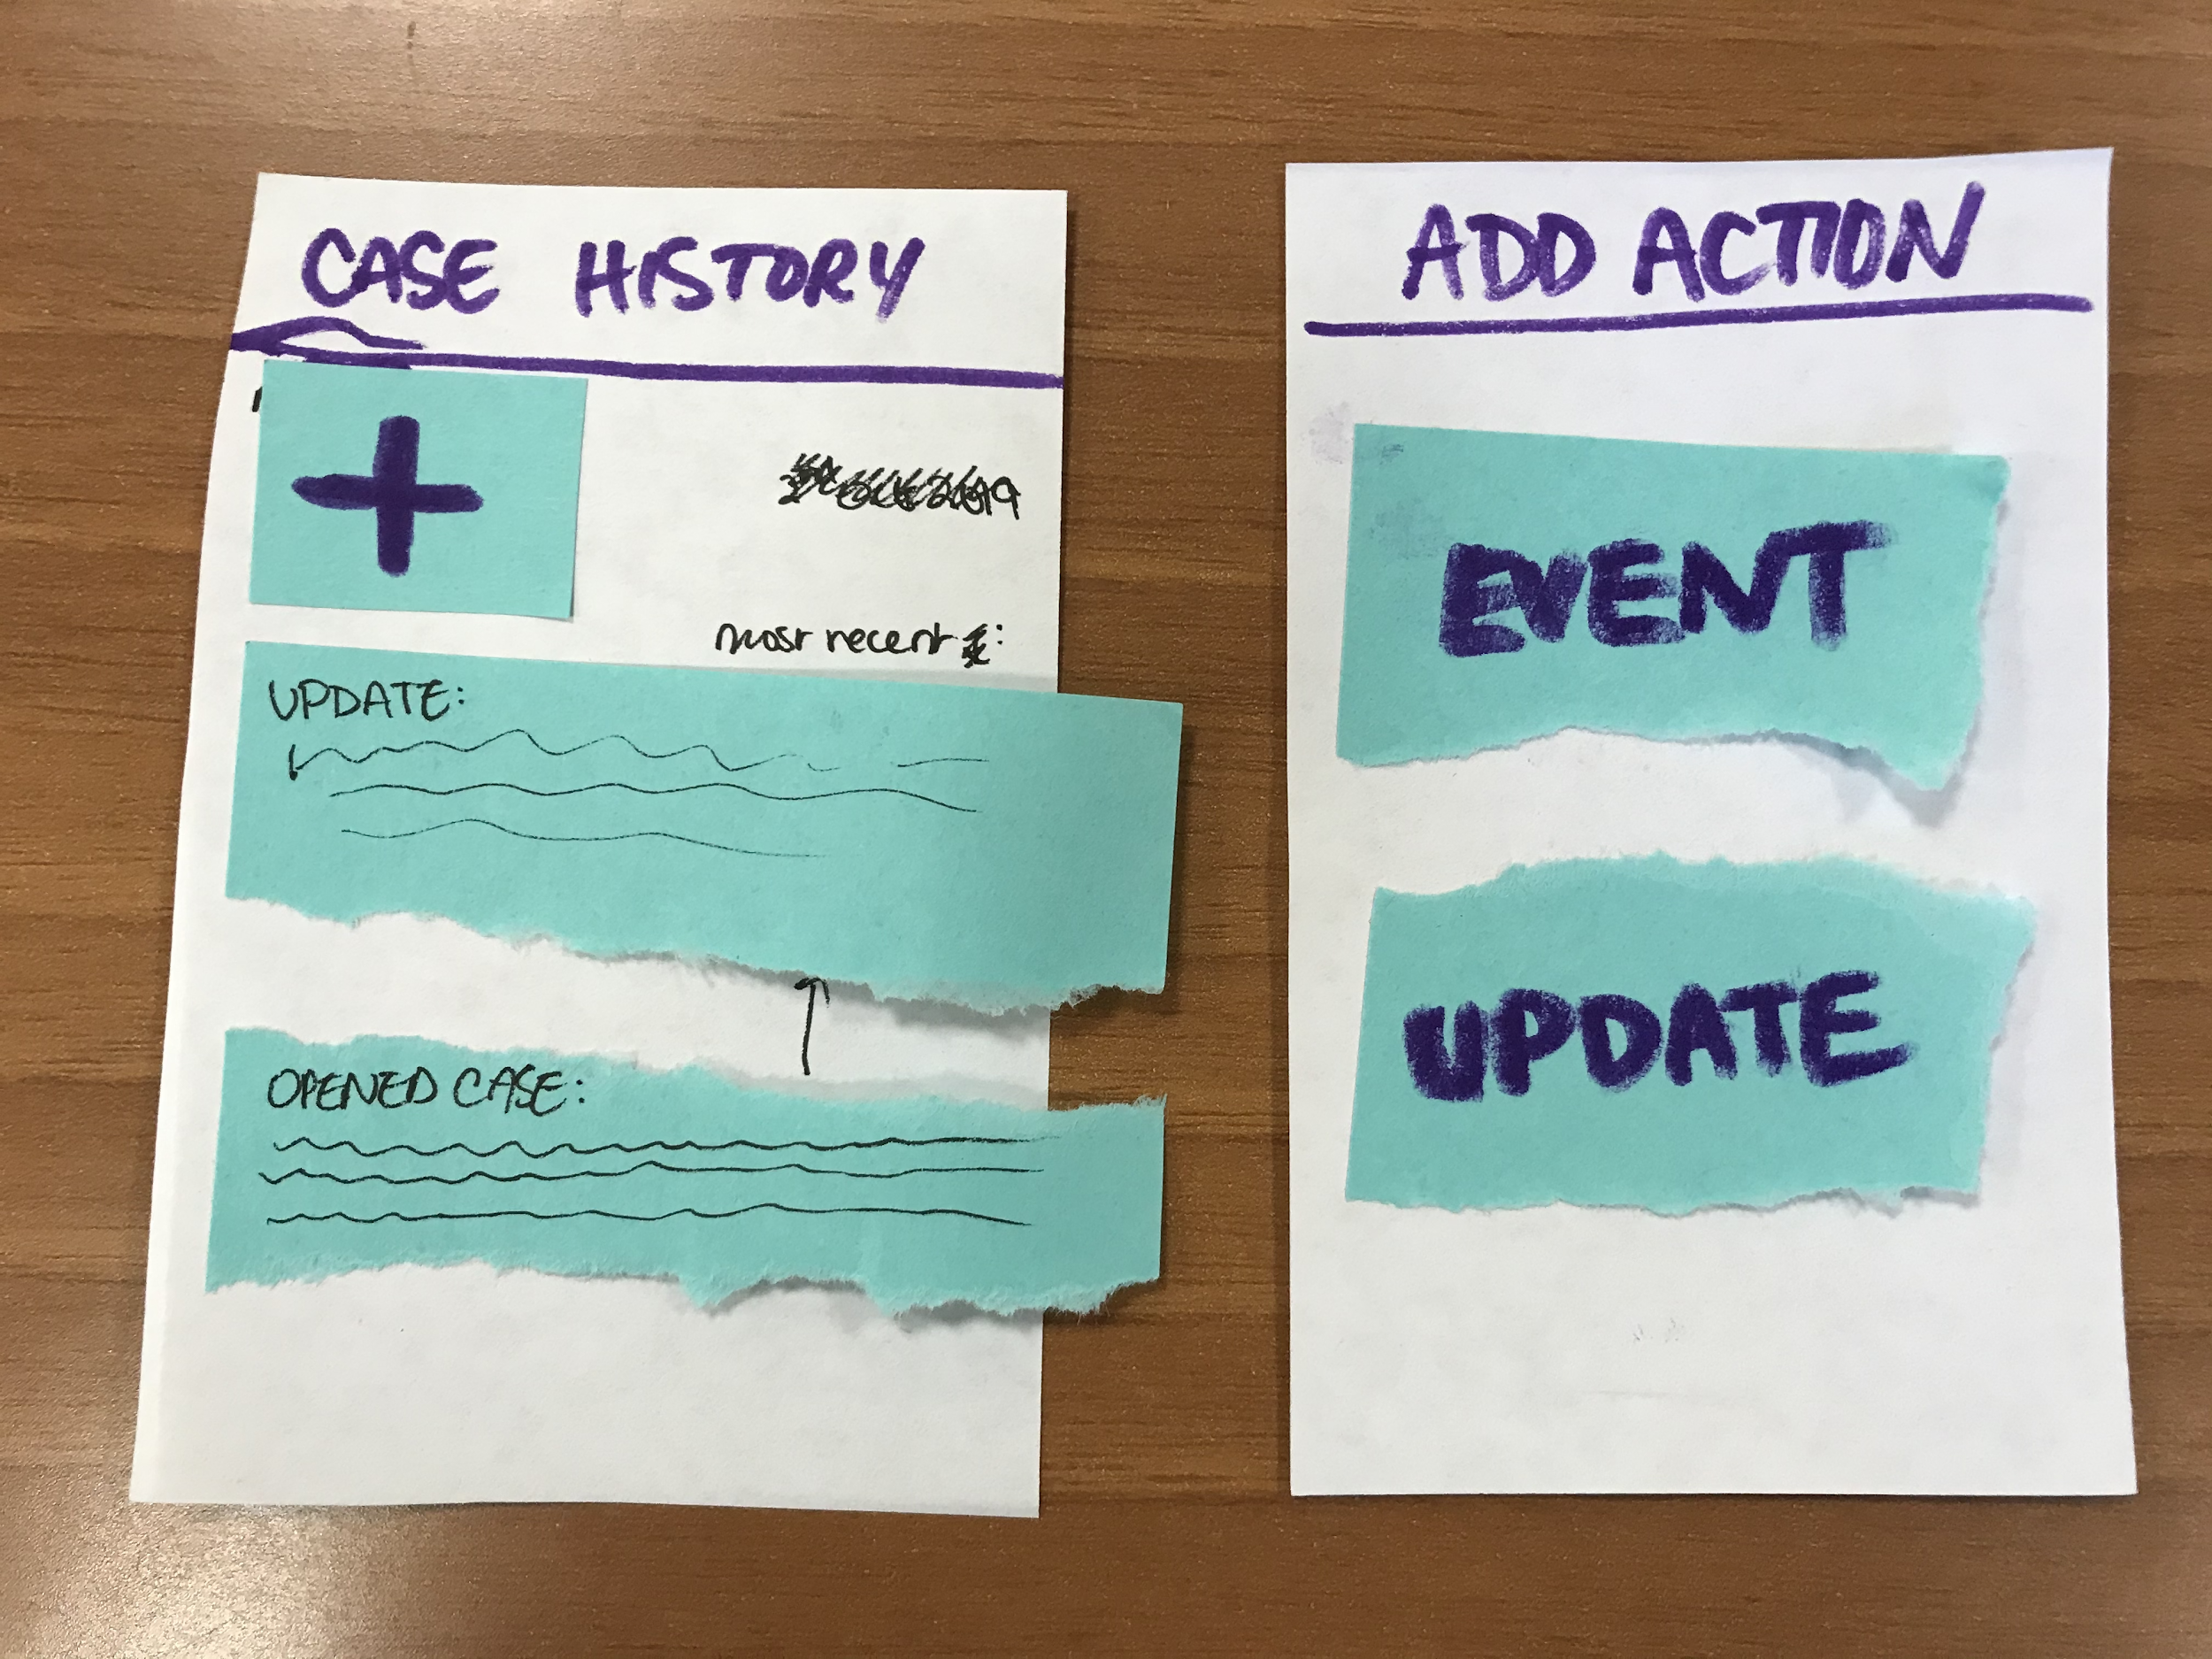 CASE HISTORY
+
most recent :
UPDATE:
OPENED CASE:
ADD ACTION
EVENT
UPDATE